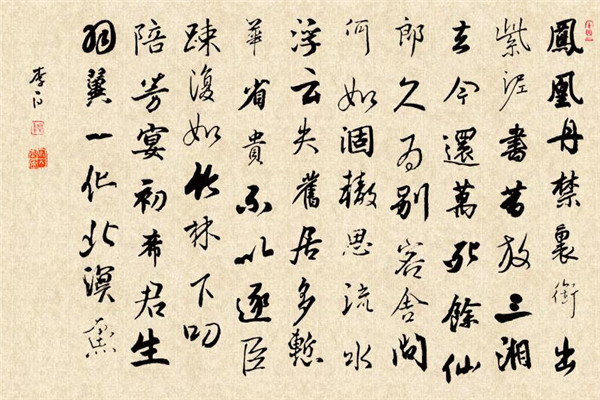 鳳凰丹禁裏銜出
紫泥書昔放三湘
去今還萬死餘仙
郎久為別客舍問
何如涸轍思流水
浮云失舊居多慙
華省貴不以逐臣
踈復如竹林下叨
陪芳宴初希君生
羽翼一化北溟魚
李白